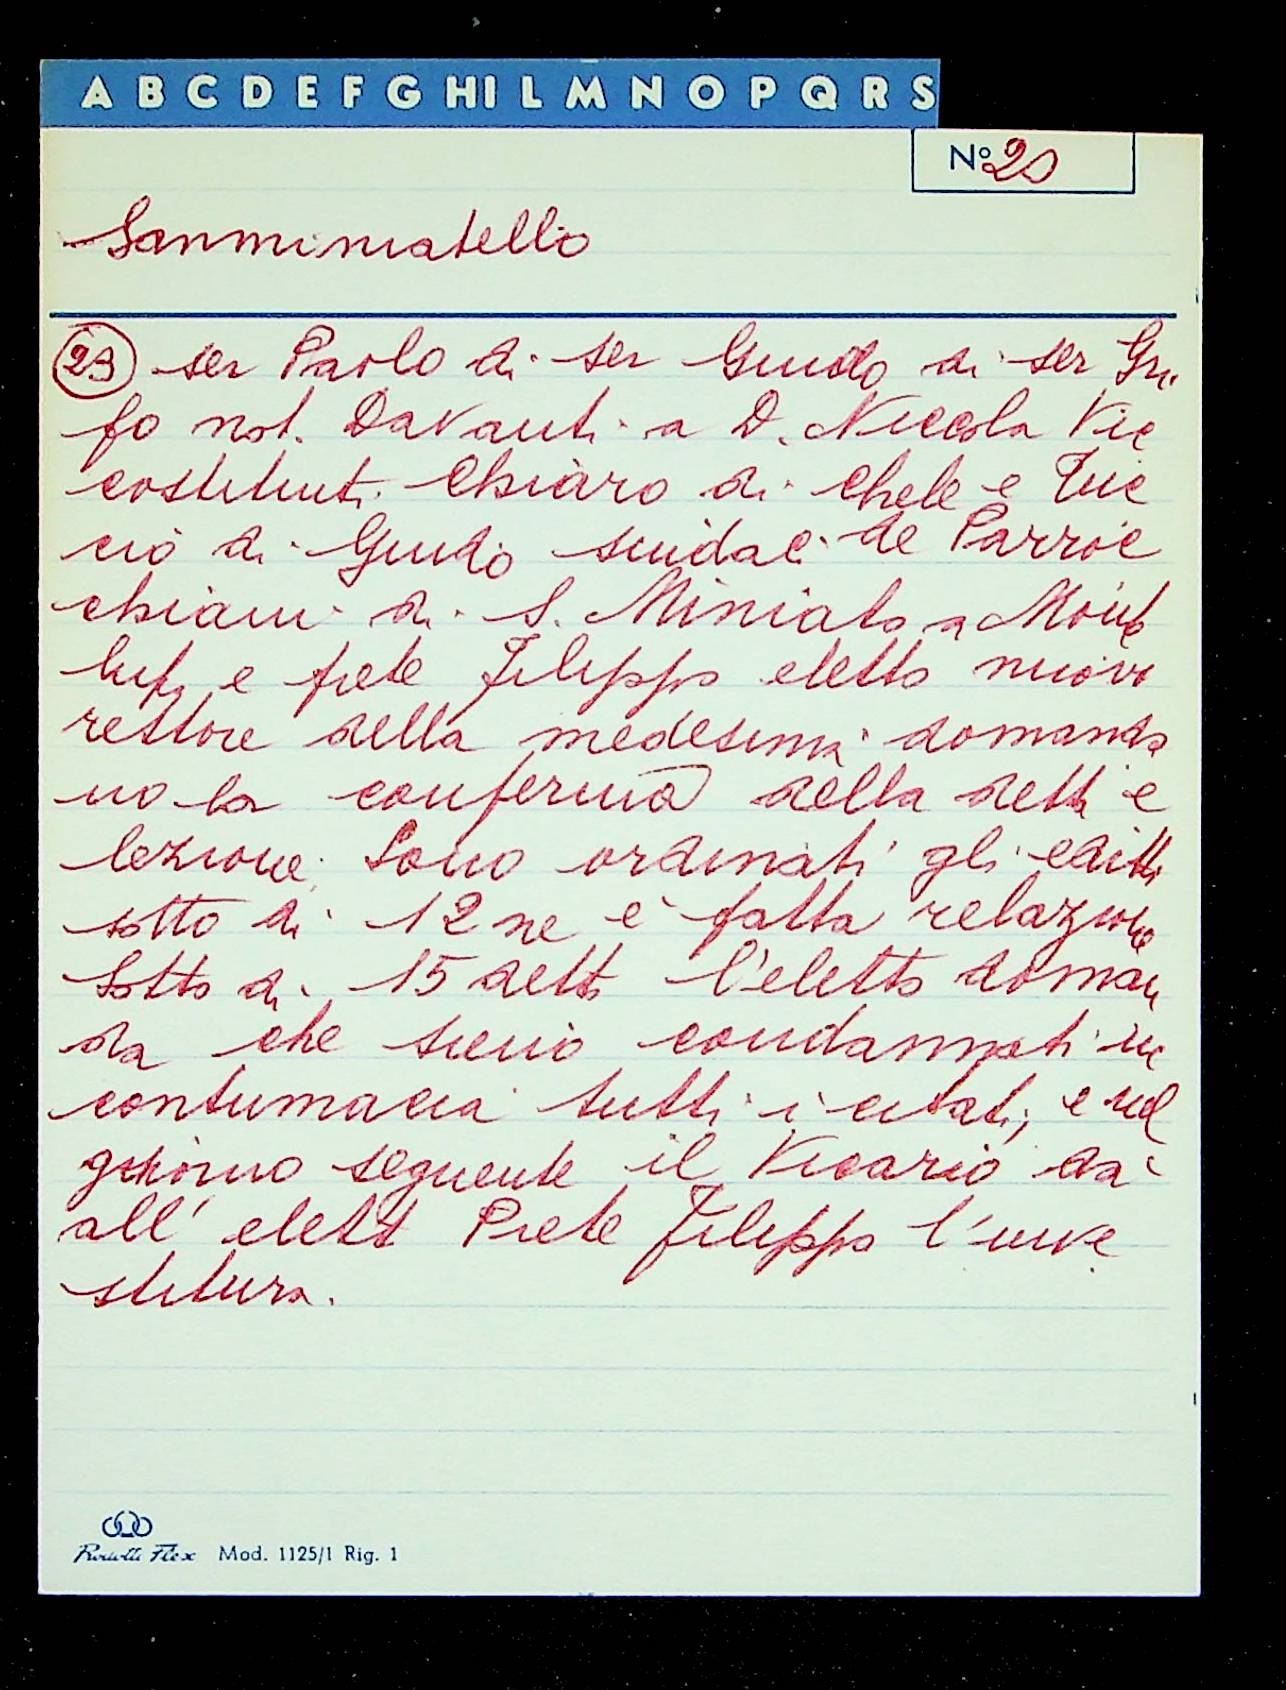 A B C D E F G H I L M N O P Q R S
Nº 20
Sanminiatello
23 ser Paolo di ser Guido di ser Gri
fo not. Davanti a D. Niccola Vic
costituti Chiaro di Chele e Tuc
cio di Guido sindaci de Parroc
chiani di S. Miniato a Monte
lupo e prete Filippo eletto nuovo
rettore della medesima domanda
no la conferma della detta e
lezione. Sono ordinati gli editti
sotto di 12 ne è fatta relazione
Sotto di 15 detto l'eletto doman
da che sieno condannati in
contumacia tutti i citati, e nel
giorno seguente il Vicario dà
all' elett Prete Filippo l'inve
stitura.
Flex Mod. 1125/1 Rig. 1